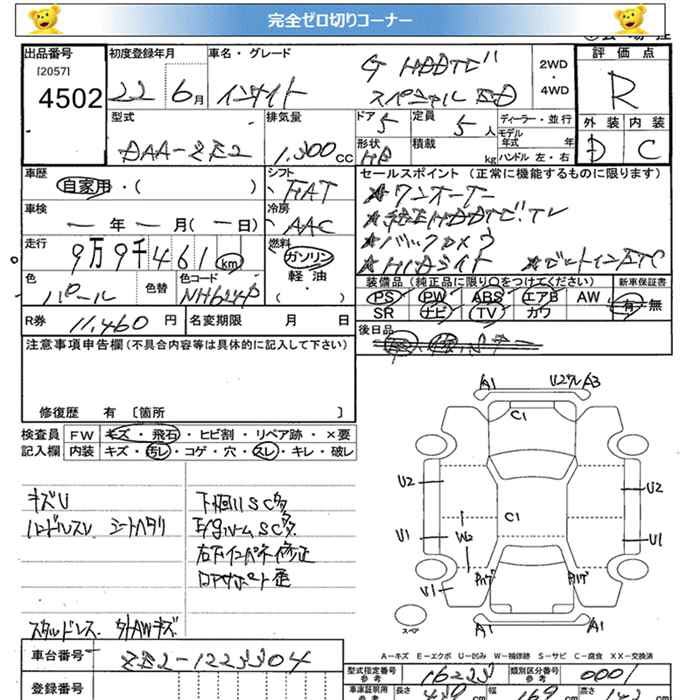 完全ゼロ切りコーナー
出品番号
[2057]
4502
初度登録年月
22 6月
車名・グレード
インサイト
G HDDナビ
スペシャル ED
2WD
・
4WD
評価点
R
外装 内装
D C
型式
DAA-ZE2
排気量
1,300cc
ドア 5
定員 5人
ディーラー・並行
モデル
年式 年
形状 HB
積載 kg
ハンドル 左・右
車歴
自家用・( )
シフト
FAT
車検
ー年ー月(ー日)
冷房
AAC
走行
9万9千461km
燃料
ガソリン
軽油
( )
色
パール
色替
色コード
NH624P
セールスポイント (正常に機能するものに限ります)
★ワンオーナー
★純正HDDナビ TV
★バックカメラ
★HIDライト ★ビルトインETC
装備品(純正品に限り○をつけてください)
新車保証書
PS PW ABS エアB AW
SR ナビ TV カワ
有・無
R券 11,460円
名変期限 月 日
後日品
注意事項申告欄(不具合内容等は具体的に記入して下さい)
修復歴 有 〔箇所 〕
検査員
記入欄
FW キズ・飛石・ヒビ割・リペア跡・×要
内装 キズ・汚レ・コゲ・穴・スレ・キレ・破レ
キズU
ハンドルスレ シートヘタリ
下回りSC多
E/gルームSC多
右下インパネ修正
ロアサポート歪
スタッドレス 外AWキズ
A1 U2ワレ A3
C1
U2 U2
C1
U1 W2 U1
U1 PハゲPハゲ
A1 A1
スペア
A-キズ E-エクボ U-凹み W-補修跡 S-サビ C-腐食 XX-交換済
車台番号
ZE2-1223304
登録番号
型式指定番号
参考
16223
類別区分番号
参考
0001
車庫証明用
参考
長さ 439cm 幅 169cm 高さ 142cm